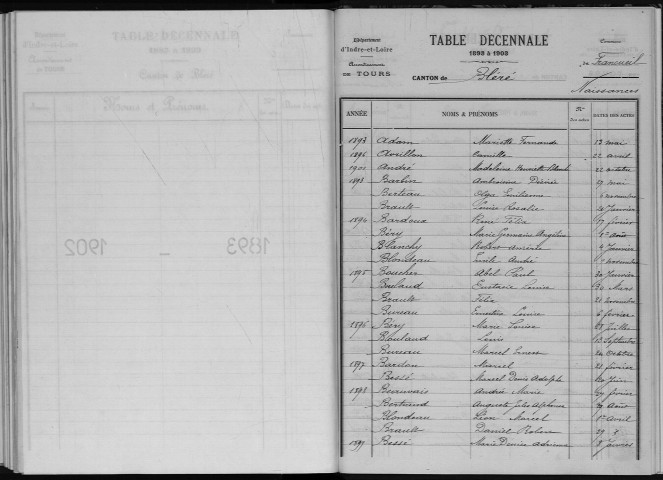 1902 - 1893
Département
d'Indre-et-Loire
Arrondissement
DE TOURS
TABLE DÉCENNALE
1893 à 1903
CANTON DE Bléré
Commune
de Francueil
Naissances
ANNÉE NOMS & PRÉNOMS Nos DATES DES ACTES
1893 Adam Mariette Fernande 13 mai
1896 Avrillon Camille 22 avril
André Madeleine Henriette 22 octobre
1893 Barbin Ambroisine Désirée mai
Berteau Olga Emilienne novembre
Brault Louise Rosalie Janvier
1894 Bardoux René Félix février
Béry Marie Germaine Angèline Août
Blanchy Robert 4 Janvier
Blondeau Emile André novembre
1895 Boucher Abel Paul 30 Janvier
Bulaud Eustasie Louise Mars
Brault Félix 21 novembre
Bureau Ernestine Louise 6 février
1896 Béry Marie Louise Juillet
Bouland Louis Septembre
Bureau Marcel Ernest 24 Octobre
1897 Bardon Marcel 21 février
Bessé Marcel Denis Adolphe Juin
1898 Beauvais André Marie février
Bertrand Auguste Jules Alphonse Août
Blondeau Léon Marcel Avril
Brault Daniel Robert 29
1899 Bessé Marie Denise Adrienne Janvier